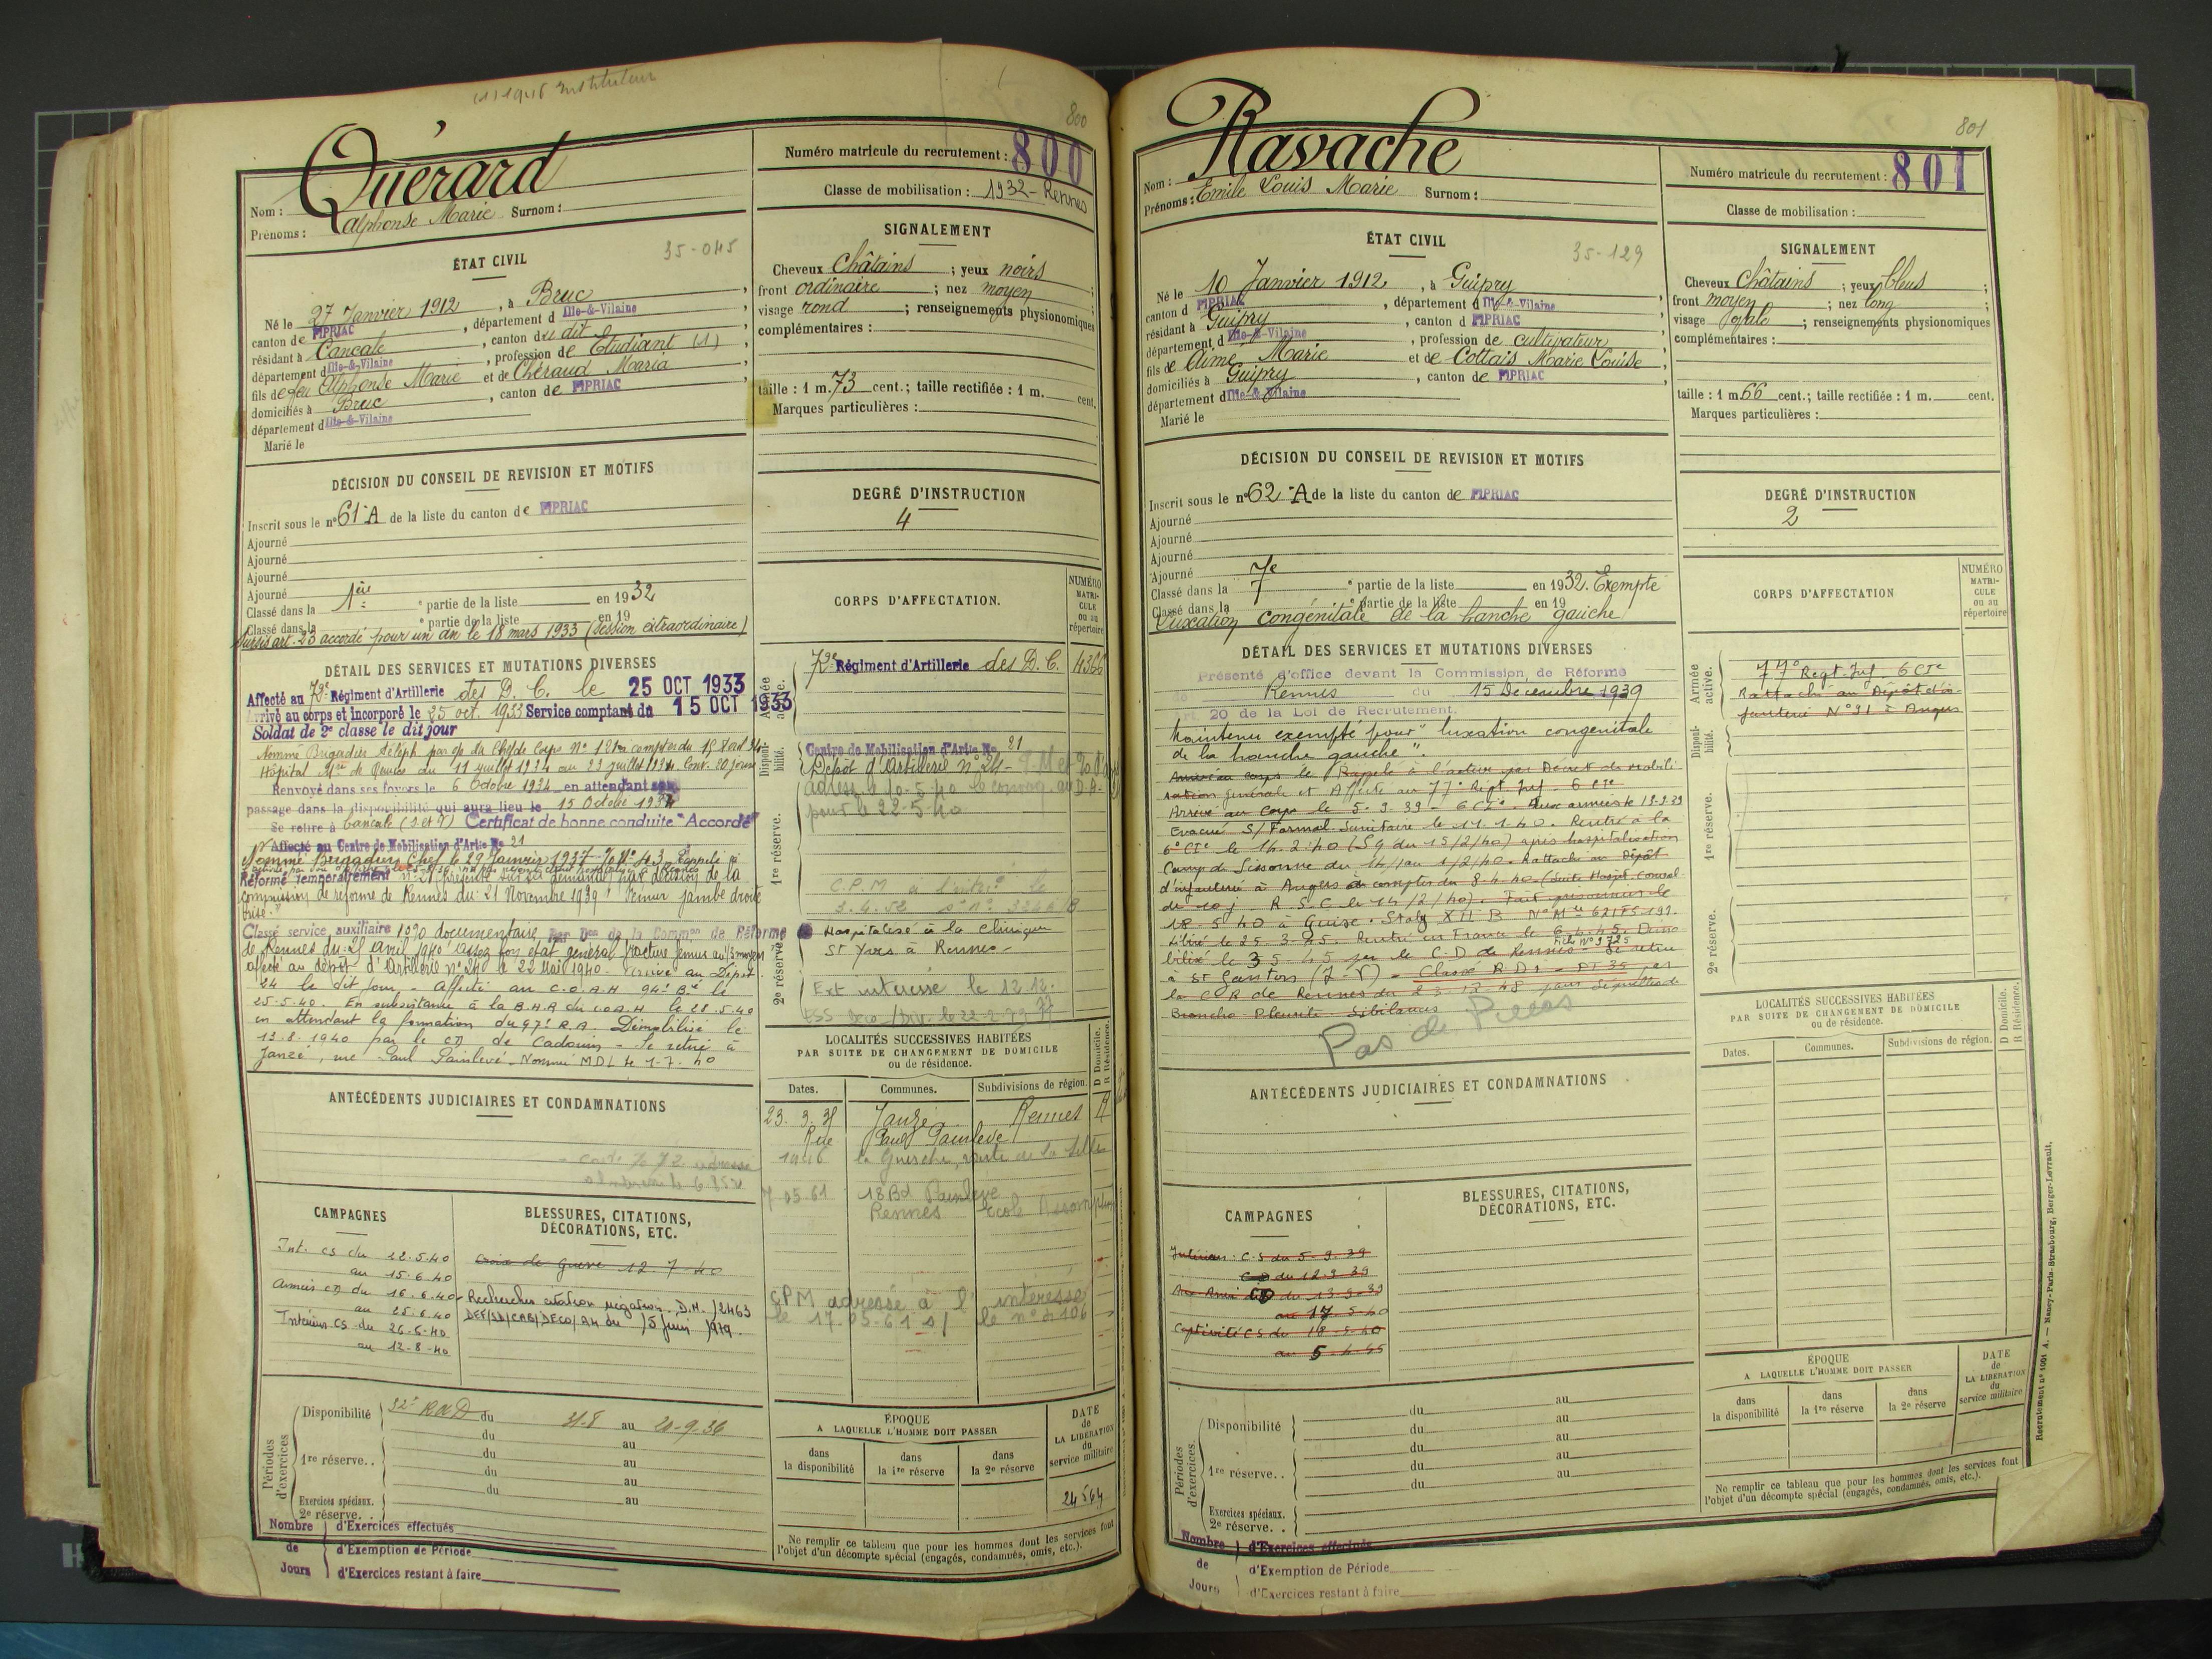 (1) 1946 Instituteur
800
Quérard
Nom :
Prénoms : Alphonse Marie Surnom :
Numéro matricule du recrutement : 800
Classe de mobilisation : 1932 - Rennes
ÉTAT CIVIL
35-045
Né le 27 Janvier 1912, à Bruc,
canton de PIPRIAC, département d Ille-&-Vilaine
résidant à Cancale, canton du dit,
département d Ille-&-Vilaine, profession de Etudiant (1),
fils de feu Alphonse Marie et de Chéraud Maria
domiciliés à Bruc, canton de PIPRIAC,
département d Ille-&-Vilaine
Marié le
SIGNALEMENT
Cheveux Châtains ; yeux noirs
front ordinaire ; nez moyen ;
visage rond ; renseignements physionomiques
complémentaires :
taille : 1 m. 73 cent. ; taille rectifiée : 1 m. cent.
Marques particulières :
DÉCISION DU CONSEIL DE REVISION ET MOTIFS
Inscrit sous le n° 61 A de la liste du canton de PIPRIAC
Ajourné
Ajourné
Ajourné
Ajourné
Classé dans la 1ère e partie de la liste en 1932
Classé dans la e partie de la liste en 19
Sursis art. 23 accordé pour un an le 18 mars 1933 (Session extraordinaire)
DEGRÉ D'INSTRUCTION
4
CORPS D'AFFECTATION.
NUMÉRO MATRICULE ou au répertoire
DÉTAIL DES SERVICES ET MUTATIONS DIVERSES
Affecté au Régiment d'Artillerie des D. C. le 25 OCT 1933
Arrivé au corps et incorporé le 25 oct. 1933 Service comptant du 15 OCT 1933
Soldat de 2e classe le dit jour
Renvoyé dans ses foyers le 6 Octobre 1934 en attendant son
passage dans la disponibilité qui aura lieu le 15 Octobre 1934
Se retire à Cancale (I et V) Certificat de bonne conduite "Accordé"
Affecté au Centre de Mobilisation d'Artie No 21
Nommé Brigadier Chef le 29 Janvier 1937
Réformé temporairement
commission de réforme de Rennes du 21 Novembre 1939 "Fémur jambe droite
brisé."
Classé service auxiliaire 10% documentaire Par Don de la Common de Réforme
de Rennes du 25 avril 1940 "Assez bon état général fracture fémur au 1/3 moyen
affecté au dépôt d'Artillerie n° 24 le 22 Mai 1940. Arrivé au Dépôt
24 le dit jour - Affecté au C.O.A.H 94e Bie le
25-5-40. En subsistance à la B.H.R du C.O.A.H le 28.5.40
en attendant la formation du 97e R.A. Démobilisé le
13.8.1940 par le CD de Cadouin - Se retire à
Janzé, rue Paul Painlevé - Nommé MDL le 1-7-40
Armée active.
Régiment d'Artillerie des D. C. 4366
Disponibilité.
Centre de Mobilisation d'Artie No 21
Dépôt d'Artillerie n° 24
pour le 22-5-40
1re réserve.
C.P.M
2e réserve
Hospitalisé à la clinique
St Yves à Rennes
Ext intéressé le 12.12.
LOCALITÉS SUCCESSIVES HABITÉES
PAR SUITE DE CHANGEMENT DE DOMICILE
ou de résidence.
Dates. Communes. Subdivisions de région. D Domicile. R Résidence.
Janzé Rennes R
Rue Paul Painlevé
1946 la Guerche, route de la Selle
7-05-61 18 Bd Painlevé
Rennes Ecole Assomption
CPM adressé à l'intéressé
le 17-05-61 s/ le n° 4106
ANTÉCÉDENTS JUDICIAIRES ET CONDAMNATIONS
CAMPAGNES
Int. CS du 22.5.40
au 15.6.40
Armées CD du 16.6.40
au 25.6.40
Intérieur CS du 26.6.40
au 13-8-40
BLESSURES, CITATIONS,
DÉCORATIONS, ETC.
Croix de Guerre 12.7.40
Recherches citation négatives. D.M. / 2463
DEF/SD/CAB/DECO/AH du 15 juin 1979.
Périodes d'exercices
Disponibilité du 31-8 au 20-9-36
du au
1re réserve. . du au
du au
du au
Exercices spéciaux.
2e réserve. .
Nombre de Jours
d'Exercices effectués
d'Exemption de Période
d'Exercices restant à faire
ÉPOQUE
A LAQUELLE L'HOMME DOIT PASSER
dans la disponibilité
dans la 1re réserve
dans la 2e réserve
DATE de LA LIBÉRATION du service militaire
Ne remplir ce tableau que pour les hommes dont les services font
l'objet d'un décompte spécial (engagés, condamnés, omis, etc.).
801
Ravache
Nom :
Prénoms : Emile Louis Marie Surnom :
Numéro matricule du recrutement : 801
Classe de mobilisation :
ÉTAT CIVIL
35-129
Né le 10 Janvier 1912, à Guipry,
canton d PIPRIAC, département d Ille-&-Vilaine
résidant à Guipry, canton d PIPRIAC
département d Ille-&-Vilaine, profession de cultivateur,
fils de Aimé Marie et de Cottais Marie Louise,
domiciliés à Guipry, canton de PIPRIAC,
département d Ille-&-Vilaine
Marié le
SIGNALEMENT
Cheveux Châtains ; yeux bleus ;
front moyen ; nez long ;
visage ovale ; renseignements physionomiques
complémentaires :
taille : 1 m. 66 cent. ; taille rectifiée : 1 m. cent.
Marques particulières :
DÉCISION DU CONSEIL DE REVISION ET MOTIFS
Inscrit sous le n° 62 A de la liste du canton de PIPRIAC
Ajourné
Ajourné
Ajourné
Ajourné
Classé dans la 7e e partie de la liste en 1932. Exempté
Classé dans la e partie de la liste en 19
Luxation congénitale de la hanche gauche
DEGRÉ D'INSTRUCTION
2
CORPS D'AFFECTATION
NUMÉRO MATRICULE ou au répertoire
DÉTAIL DES SERVICES ET MUTATIONS DIVERSES
Présenté d'office devant la Commission de Réforme
de Rennes du 15 Décembre 1939
art. 20 de la Loi de Recrutement.
Maintenu exempté pour "luxation congénitale
de la hanche gauche".
Arrivé au corps le Rappelé à l'activité par Décret de mobili-
sation générale et Affecté au 77e Régt Inf - 6 CIe
Arrivé au Corps le 5-9-39 - 6 CIe - Aux armées le 13-9-39
Evacué S/ Formal. Sanitaire le 11.1.40. Rentré à la
6e CIe le 14.2.40 (SG du 15/2/40) après hospitalisation
Camp de Sissonne du 14/1 au 1/2/40. Rattaché au Dépôt
d'infanterie à Angers à compter du 8-4-40 (Suite Hospit Conval
de 10 j R.S.C. le 14/2/40). Fait prisonnier le
18-5-40 à Guise. Stalag XII B N° Mle 62175-199.
Libéré le 25-3-45. Rentré en France le 6.4.45. Démo-
bilisé le 3 5-45 par le C.D de Rennes Fiche N° 9725 Se retire
à St Ganton (I-V) - Classé R D 1 - PI 35 par
la C R de Rennes du 23-12-48 pour Séquelles de
Broncho Pleurite Sibilances
Pas de Pieces
Armée active.
77e Regt Inf 6 CIe
Rattaché au Dépôt d'in-
fanterie N° 91 à Angers
Disponibilité.
1re réserve.
2e réserve.
LOCALITÉS SUCCESSIVES HABITÉES
PAR SUITE DE CHANGEMENT DE DOMICILE
ou de résidence.
Dates. Communes. Subdivisions de région. D Domicile. R Résidence.
ANTÉCÉDENTS JUDICIAIRES ET CONDAMNATIONS
CAMPAGNES
Intérieur : C.S du 5-9-39
au 12-9-39
du 13-9-39
au 17-5-40
Captivité CS du 18-5-40
au 5-4-45
BLESSURES, CITATIONS,
DÉCORATIONS, ETC.
Périodes d'exercices.
Disponibilité du au
du au
1re réserve. . du au
du au
du au
du
Exercices spéciaux.
2e réserve. .
Nombre de Jours
d'Exercices effectués
d'Exemption de Période
d'Exercices restant à faire
ÉPOQUE
A LAQUELLE L'HOMME DOIT PASSER
dans la disponibilité
dans la 1re réserve
dans la 2e réserve
DATE de LA LIBÉRATION du service militaire
Ne remplir ce tableau que pour les hommes dont les services font
l'objet d'un décompte spécial (engagés, condamnés, omis, etc.).
Recrutement n° 1001 A. — Nancy-Paris-Strasbourg, Berger-Levrault.